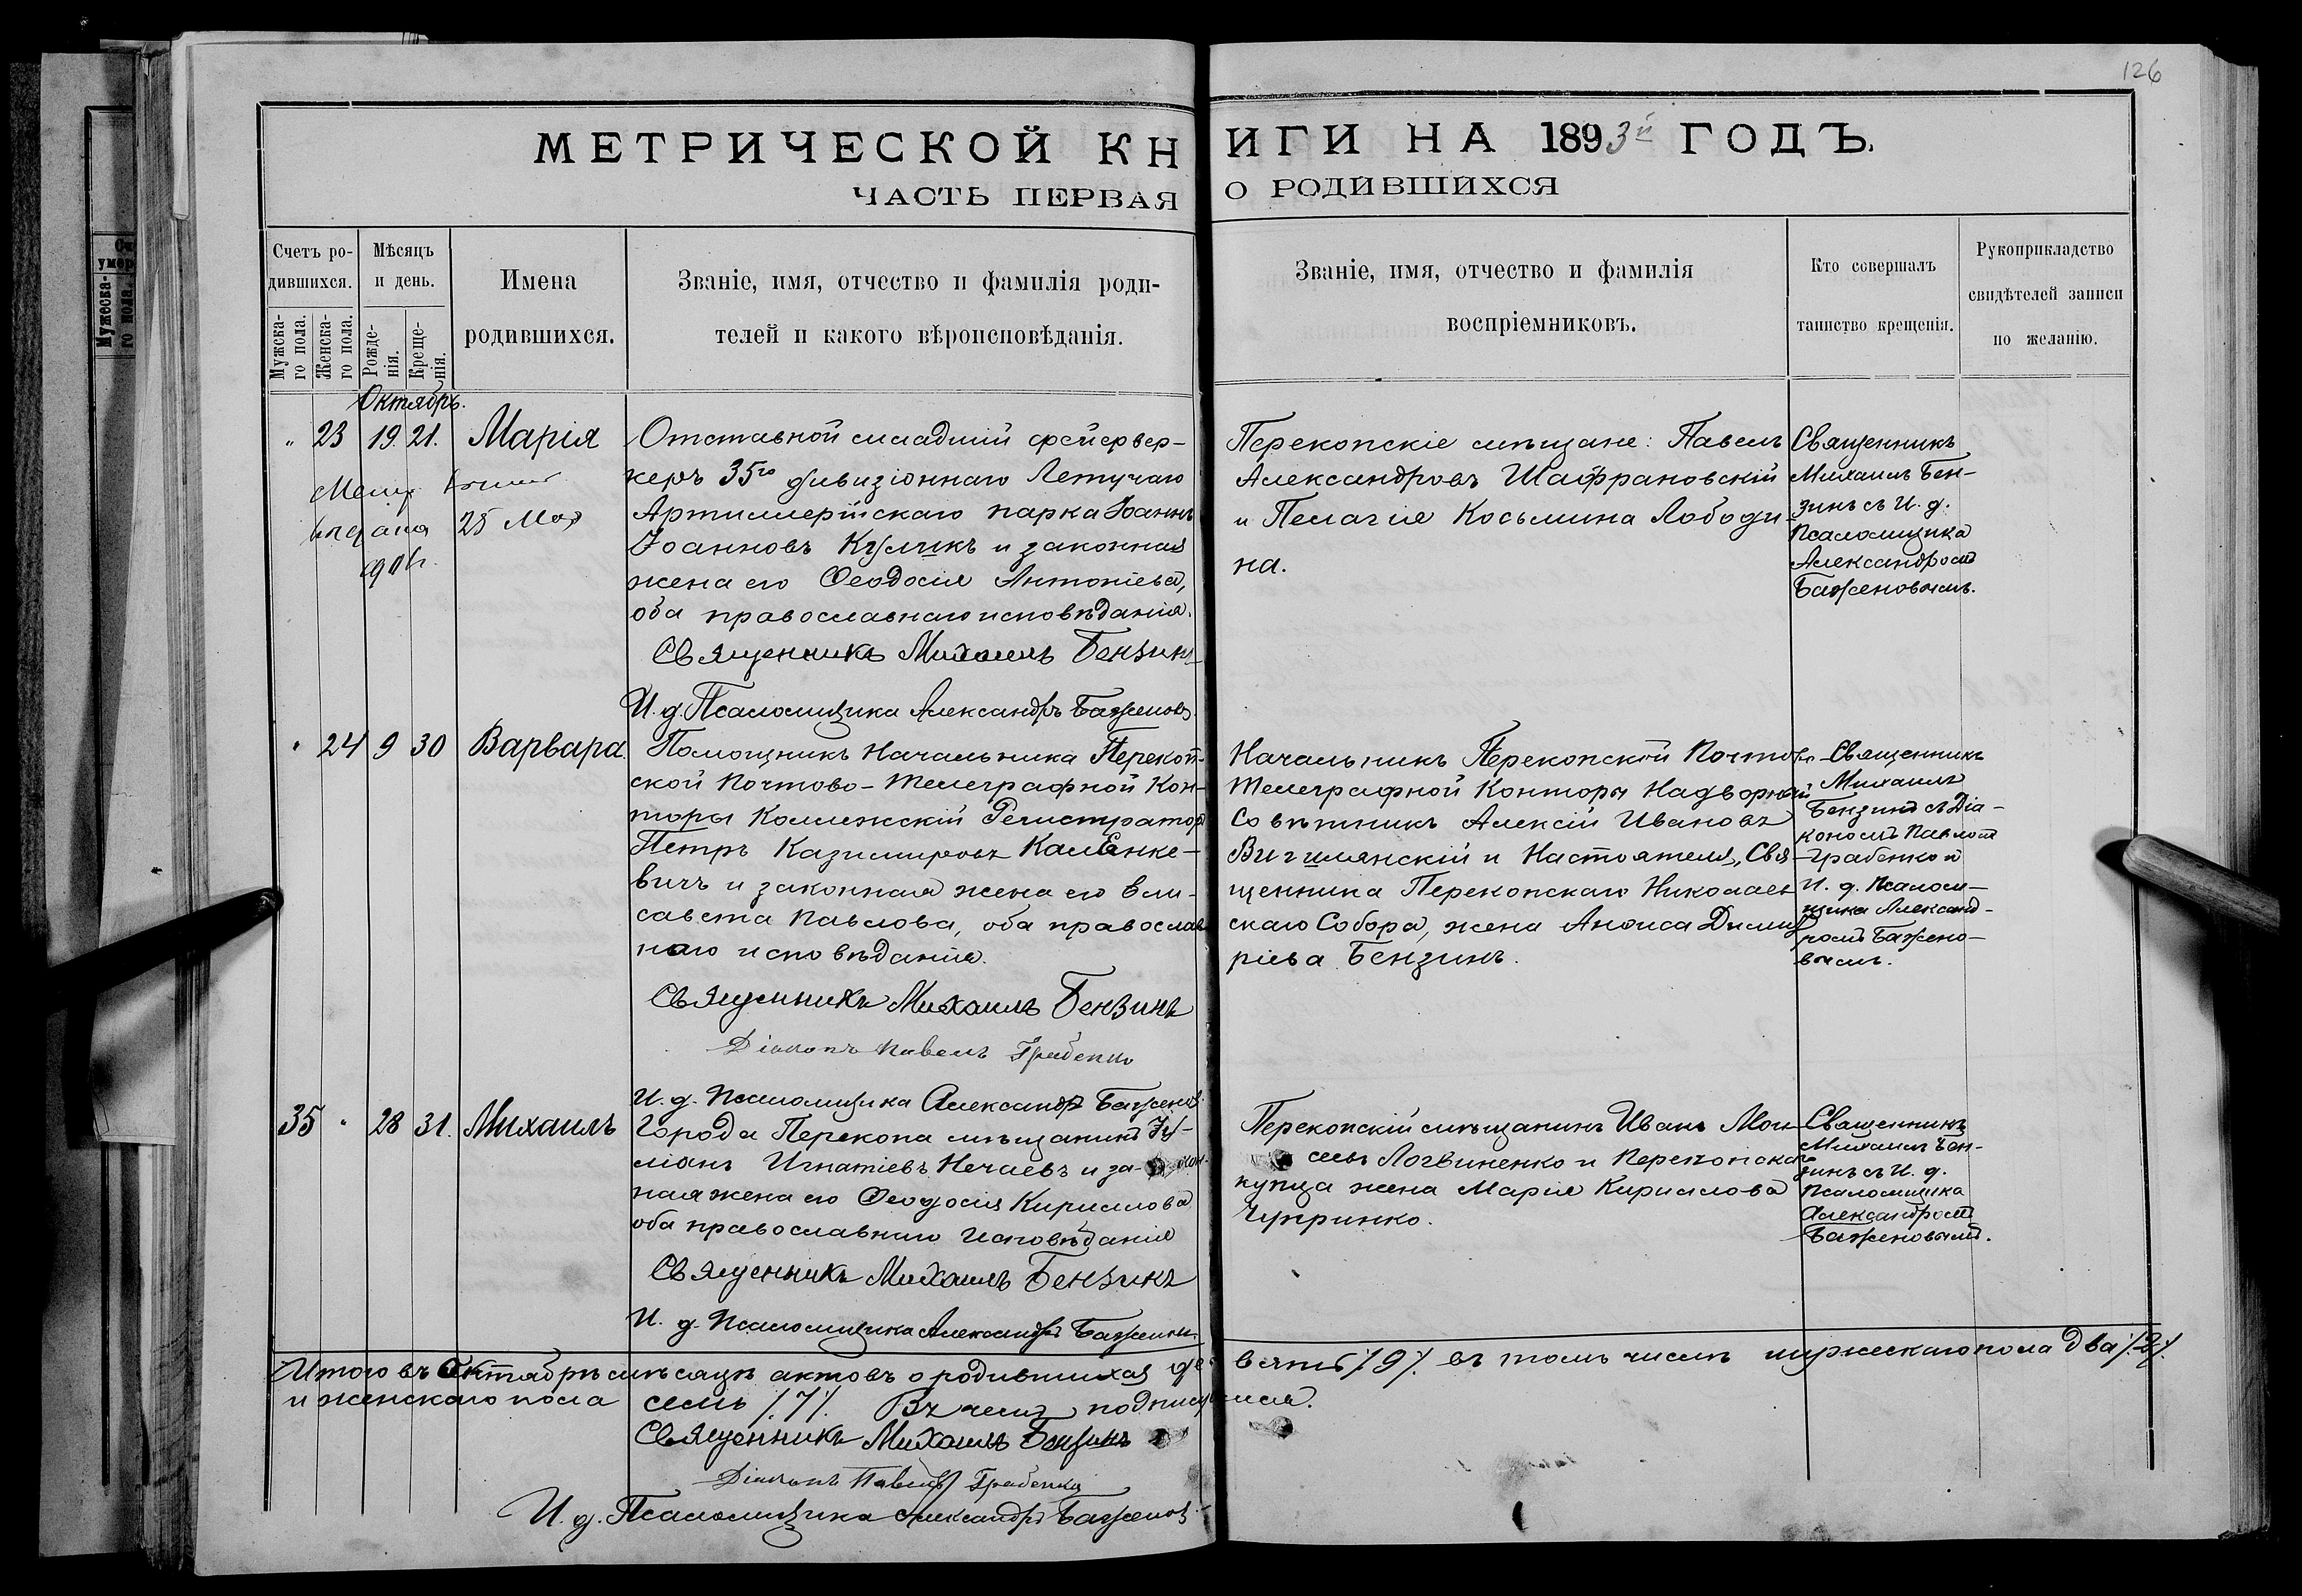 126
МЕТРИЧЕСКОЙ КНИГИ НА 1893й ГОДЪ.
ЧАСТЬ ПЕРВАЯ О РОДИВШИХСЯ
Счетъ ро-
дившихся.
Мужска-
го пола.
Женска-
го пола.
Мѣсяцъ
и день.
Рожде-
нія.
Креще-
нія.
Имена
родившихся.
Званіе, имя, отчество и фамилія роди-
телей и какого вѣроисповѣданія.
Званіе, имя, отчество и фамилія
воспріемниковъ.
Кто совершалъ
таинство крещенія.
Рукоприкладство
свидѣтелей записи
по желанію.
Октябрь.
" 23 19. 21. Марія
25 Мая
Отставной младшій фейервер-
керъ 35го дивизіоннаго Летучаго
Артиллерійскаго парка Іоаннъ
Іоанновъ Куликъ и законная
жена его Ѳеодосія Антоніева,
оба православнаго исповѣданія.
Священникъ Михаилъ Бензинъ
И. д. Псаломщика Александръ Баженовъ.
Перекопскіе мѣщане: Павелъ
Александровъ Шафрановскій
и Пелагія Косьмина Лободи-
на.
Священникъ
Михаилъ Бен-
зинъ съ И. д.
Псаломщика
Александромъ
Баженовымъ.
" 24 9 30 Варвара.
Помощникъ Начальника Перекоп-
ской Почтово-Телеграфной Кон-
торы Коллежскій Регистраторъ
Петръ Казимировъ Каменке-
вичъ и законная жена его Ели-
савета Павлова, оба православ
наго исповѣданія.
Священникъ Михаилъ Бензинъ
Діаконъ Павелъ Грабенко
И. д. Псаломщика Александръ Баженовъ
Начальникъ Перекопской Почтово-
Телеграфной Конторы Надворный
Совѣтникъ Алексій Ивановъ
и Настоятеля, Свя-
щенника Перекопскаго Николаев
скаго Собора, жена Анѳиса Димит
ріева Бензинъ.
Священникъ
Михаилъ
Бензинъ съ Діа-
кономъ Павломъ
Грабенко и
И. д. Псалом-
щика Александ-
ромъ Бажено-
вымъ.
35 " 28 31. Михаилъ
Города Перекопа мѣщанинъ Іу-
ліанъ Игнатіевъ Нечаевъ и за-кон-
ная жена его Ѳеодосія Кириллова
оба православнаго исповѣданія
Священникъ Михаилъ Бензинъ
И. д. Псаломщика Александръ Баженовъ.
Перекопскій мѣщанинъ Иванъ Мои-
сеевъ Логвиненко и Перекопскаго
купца жена Марія Кириллова
Чупринко.
Священникъ
Михаилъ Бен-
зинъ съ И. д.
Псаломщика
Александромъ
Баженовымъ.
Итого въ Октябрѣ мѣсяцѣ актовъ о родившихся девять /.9/. въ томъ числѣ мужескаго пола два /.2/.
и женскаго пола семь /.7/. Въ чемъ подписуемся.
Священникъ Михаилъ Бензинъ
Діаконъ Павелъ Грабенко
И. д. Псаломщика Александръ Баженовъ